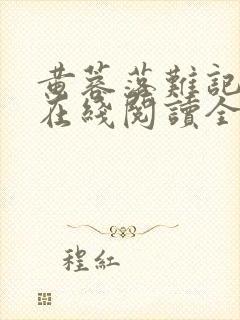 黄蓉落難記
在綫閱讀全
程紅